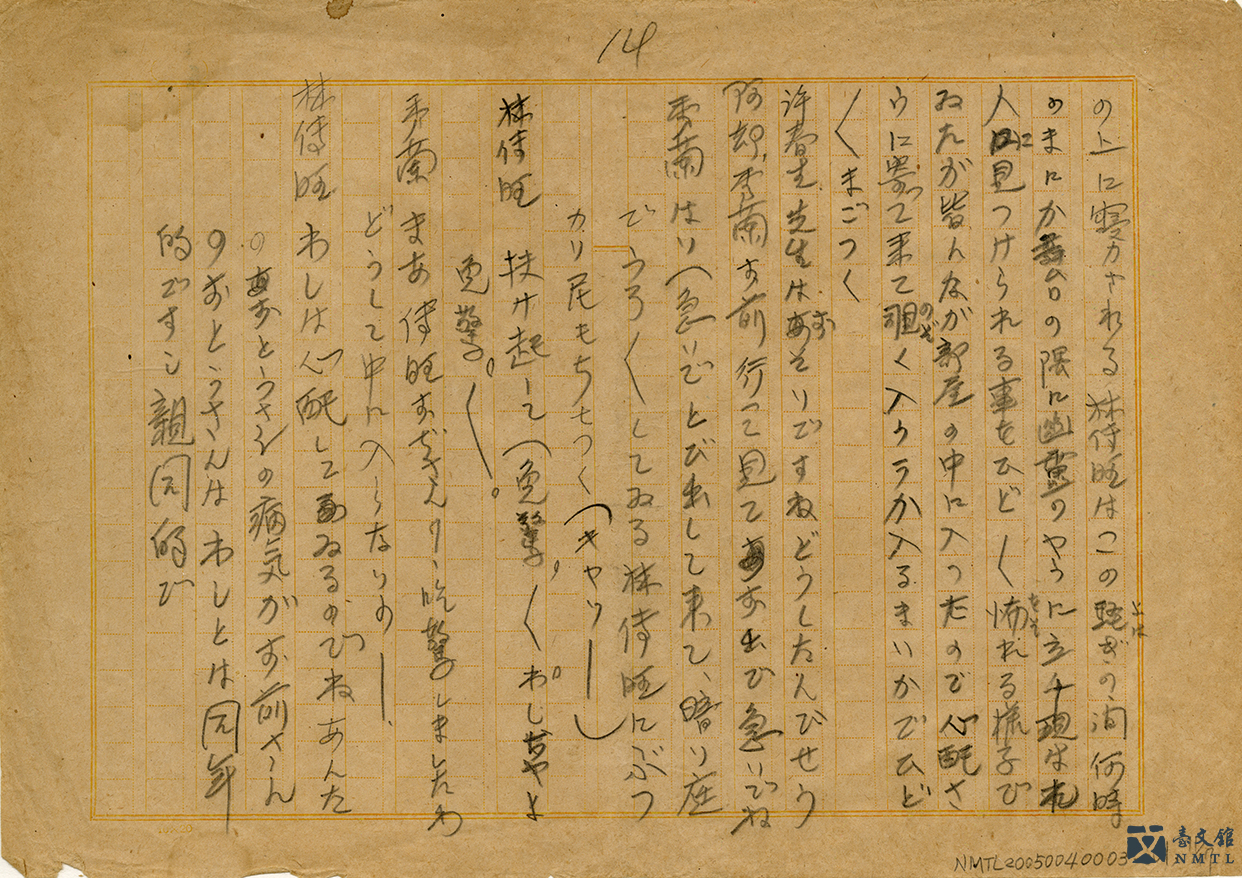 14
の上に寝かされる 林侍旺はこの騒ぎの間何時
のまにか舞台の隅に幽霊のやうに立ち現はれ
人に見つけられる事をひどく怖れる様子で
ゐたが皆んなが部屋の中に入つたので心配さ
うに寄つて来て覗く入らうか入るまいかでひど
くまごつく
許春生 先生はおそいですねどうしたんでせう
阿却 秀蘭お前行つて見ておいで急いでね
秀蘭 はい(急いでとび出して来て、暗い庭
でうろ〱してゐる林侍旺にぶつ
かり尻もちをつく(キヤツー)
林侍旺 扶け起して(免驚。〱わしぢやよ
免驚。〱。
秀蘭 まあ 侍旺おぢさんー、吃驚しましたわ
どうして中に入らないのー
林侍旺 わしは心配してゐるのでねあんた
のおとうさんの病気がお前さん
のおとうさんはわしとは同年
的ですし親同的で
NMTL2005004000
臺文館
NMTL